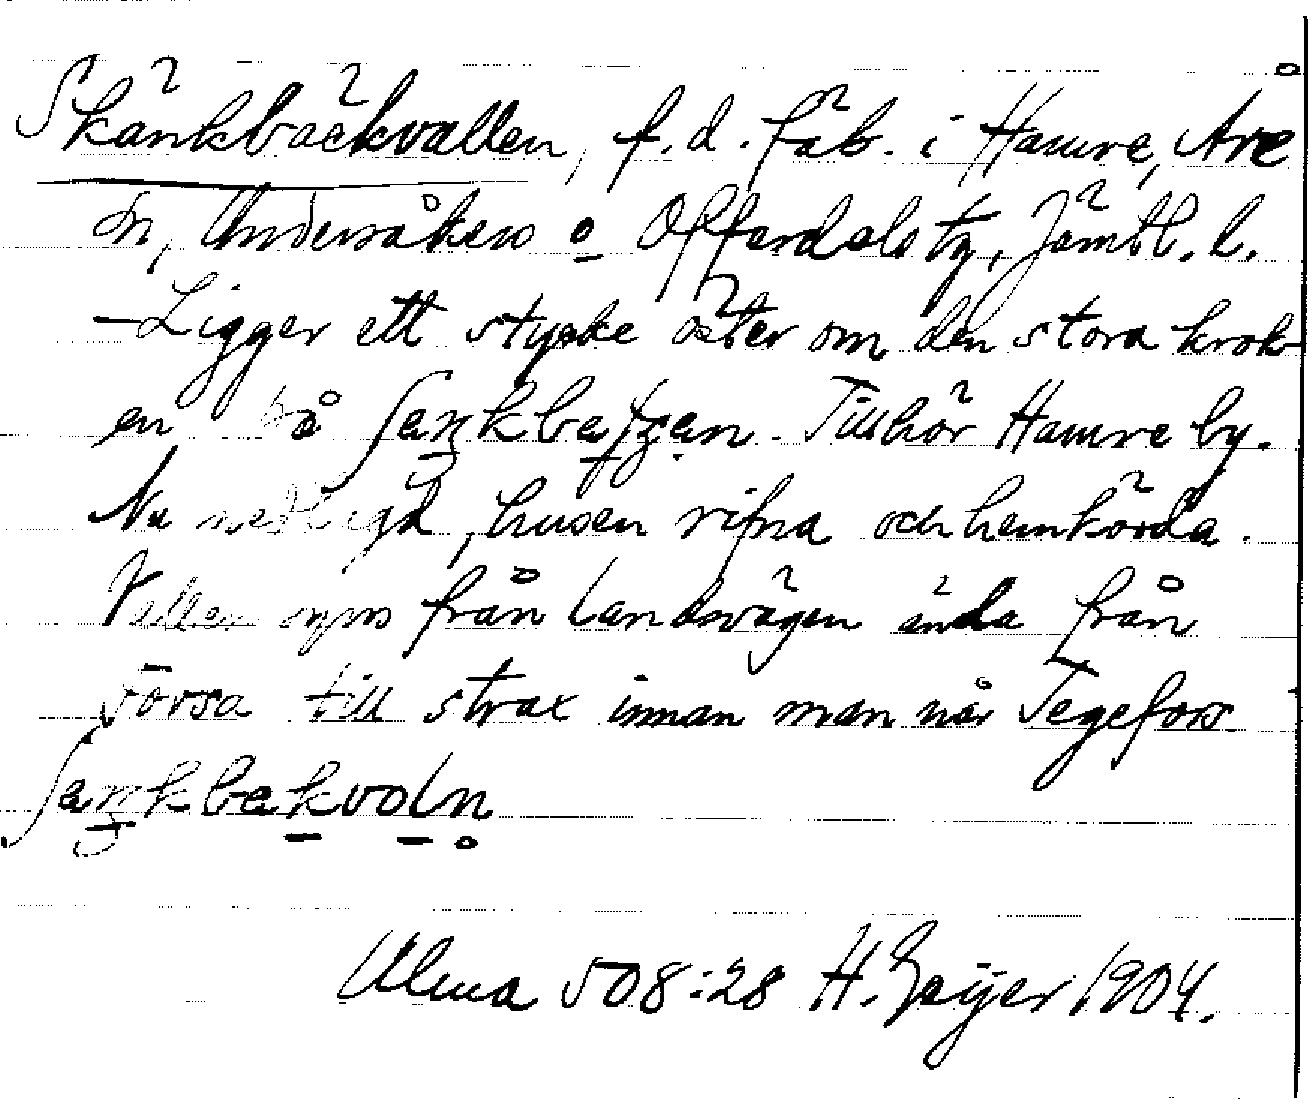 Skänkbäckvallen, f.d. fäb. i Hamre, Åre
sn, Undersåkers o Offerdals tg, Jämtl. l.
–Ligger ett stycke öster om den stora krok-
en på Tillhör Hamre by.
Nu nedlagd, husen rifna och hemkörda.
Vallen syns från landsvägen ända från
Forsa till strax innan man når Tegefors
ʃaŋkbakvoln̥
Ulma 508:28 H. Geijer 1904.